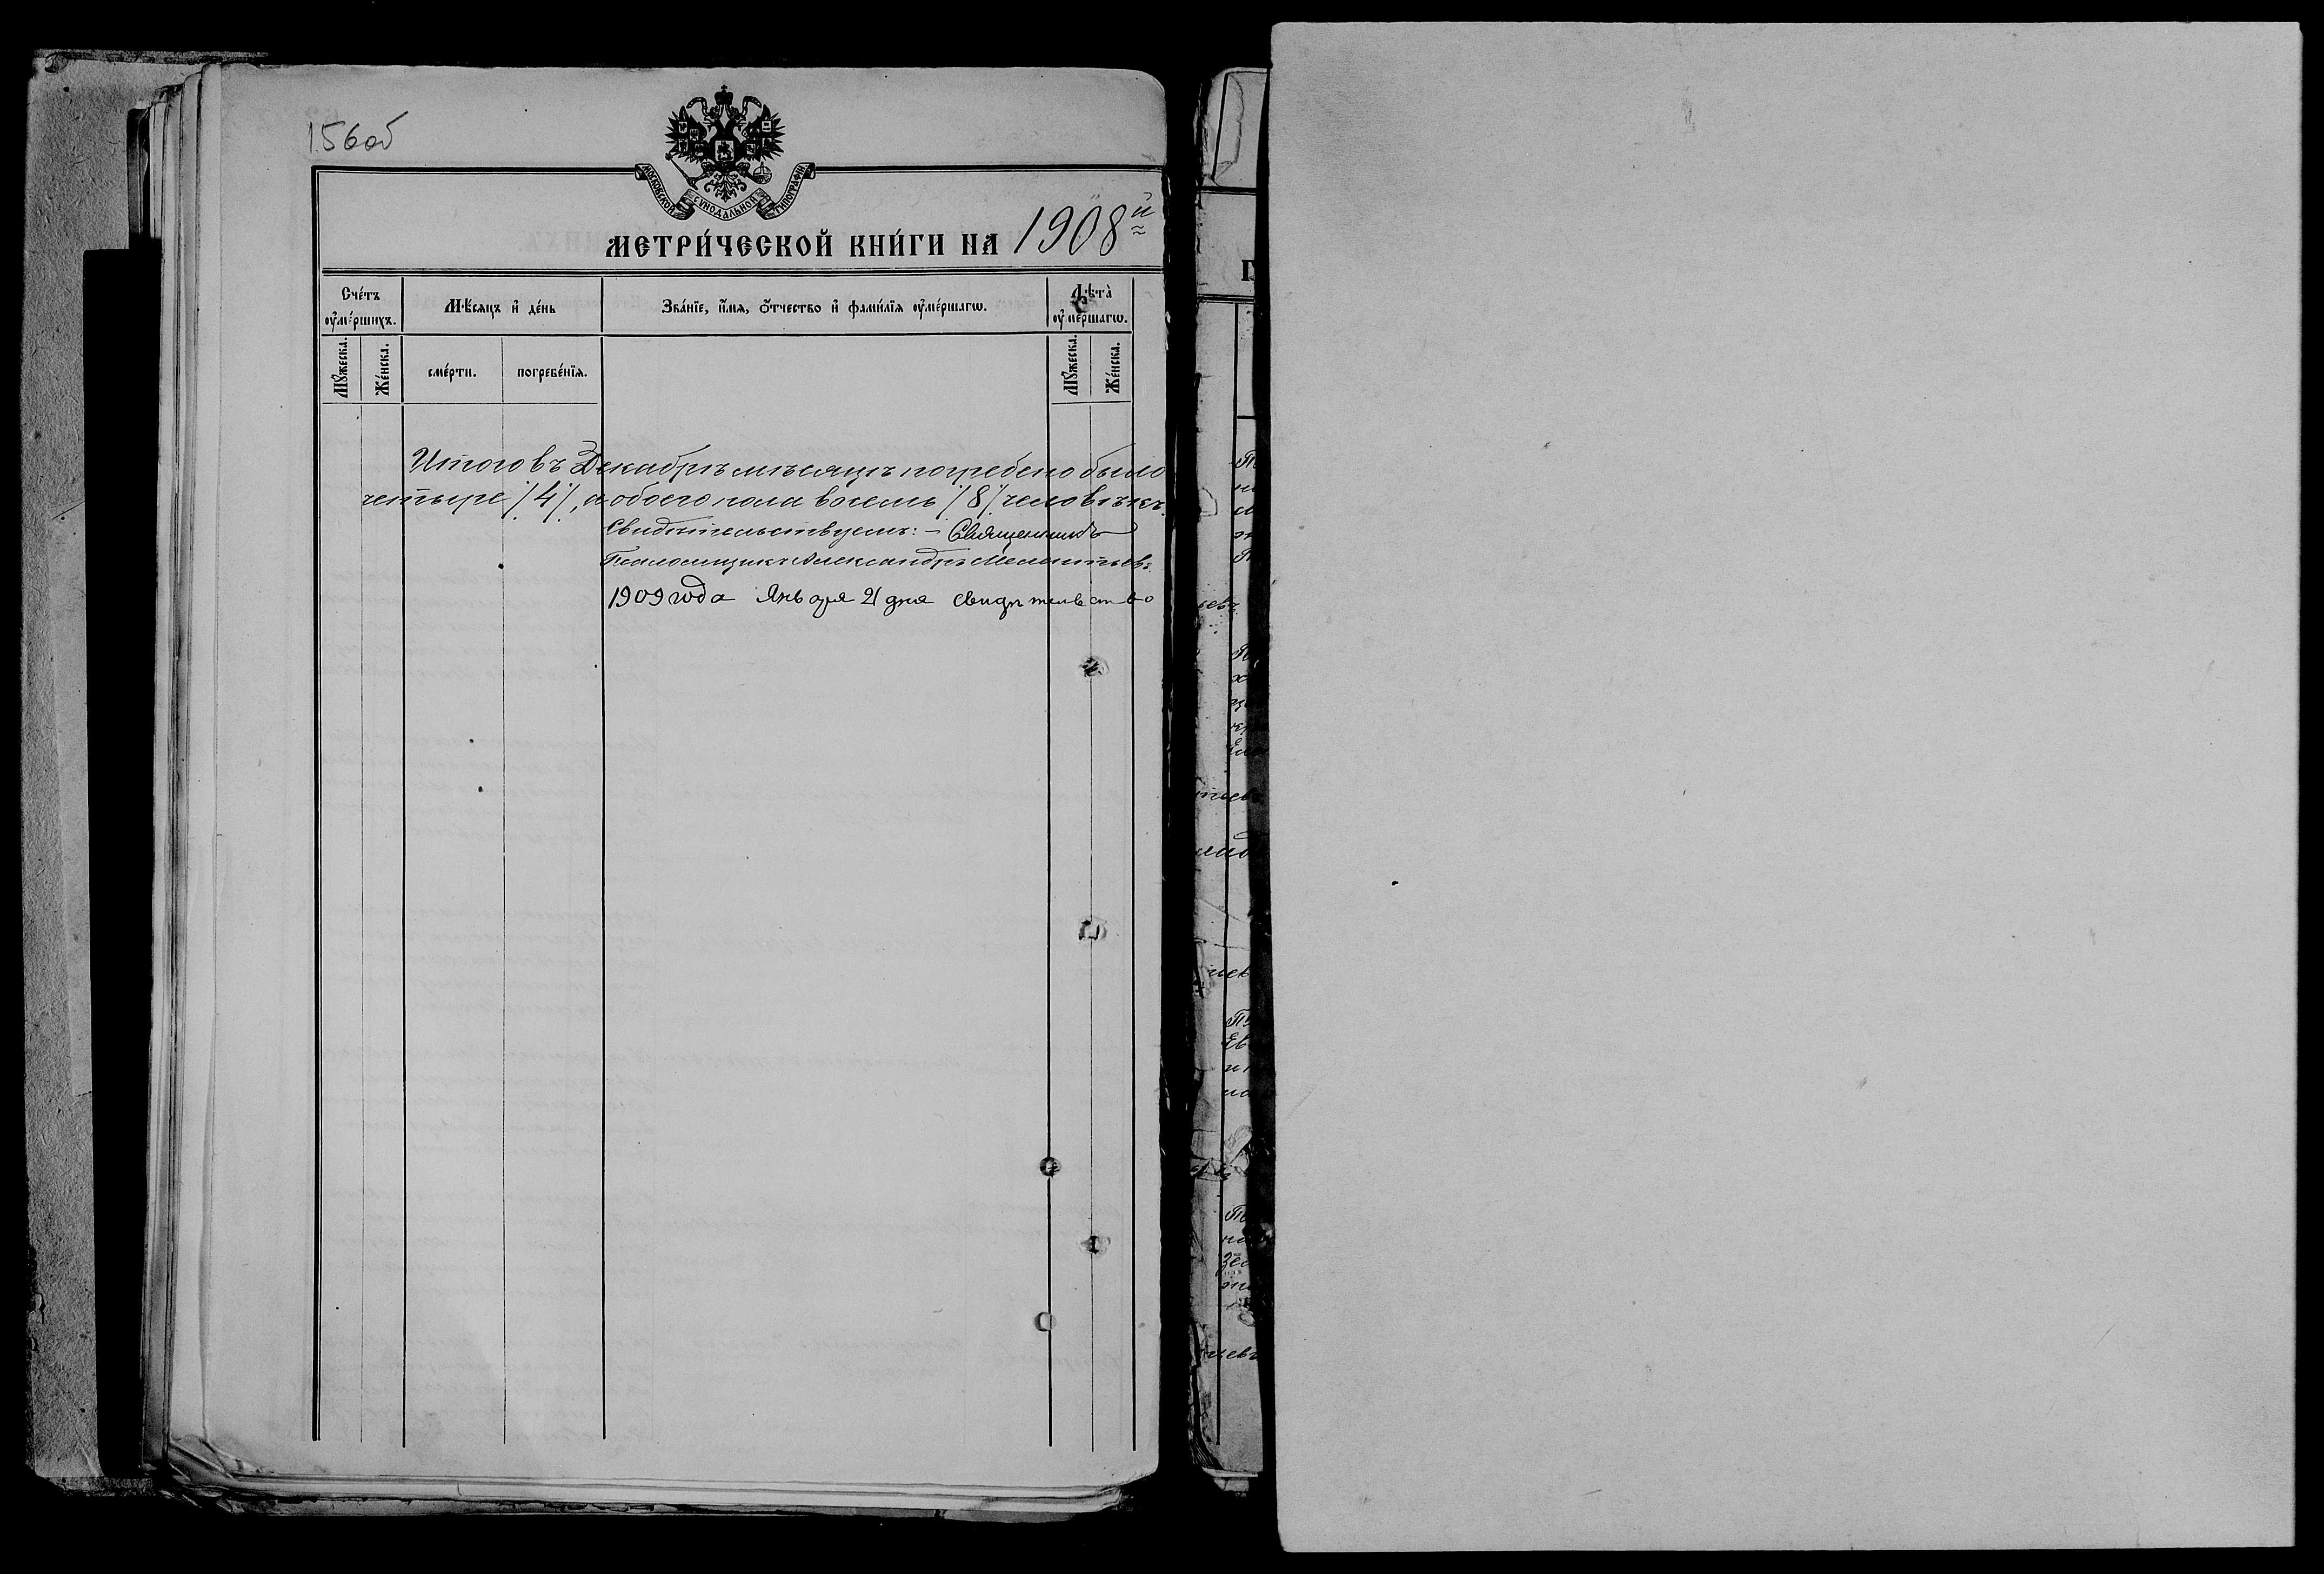 156об
МОСКОВСКОЙ СѴНОДАЛЬНОЙ ТИПОГРАФІИ
МЕТРИ́ЧЕСКОЙ КНИ́ГИ НА 1908й
Сче́тъ оу҆ме́ршихъ.
Мѣ́сяцъ и҆ де́нь
Зва́нїе, и҆́мя, ѻ҆́тчество и҆ фами́лїя оу҆ме́ршагѡ.
Лѣ́та̀ оу҆ме́ршагѡ.
Мꙋ́жеска.
Же́нска.
сме́рти.
погребе́нїя.
Мꙋ́жеска.
Же́нска.
Итого въ Декабрѣ мѣсяцѣ погребено было
четыре /4/, а обоего пола восемь /8/ человѣкъ.
Свидѣтельствуемъ: – Священникъ
Псаломщикъ Александръ Мелентьевъ
1909 года Января 21 дня свидѣтельство